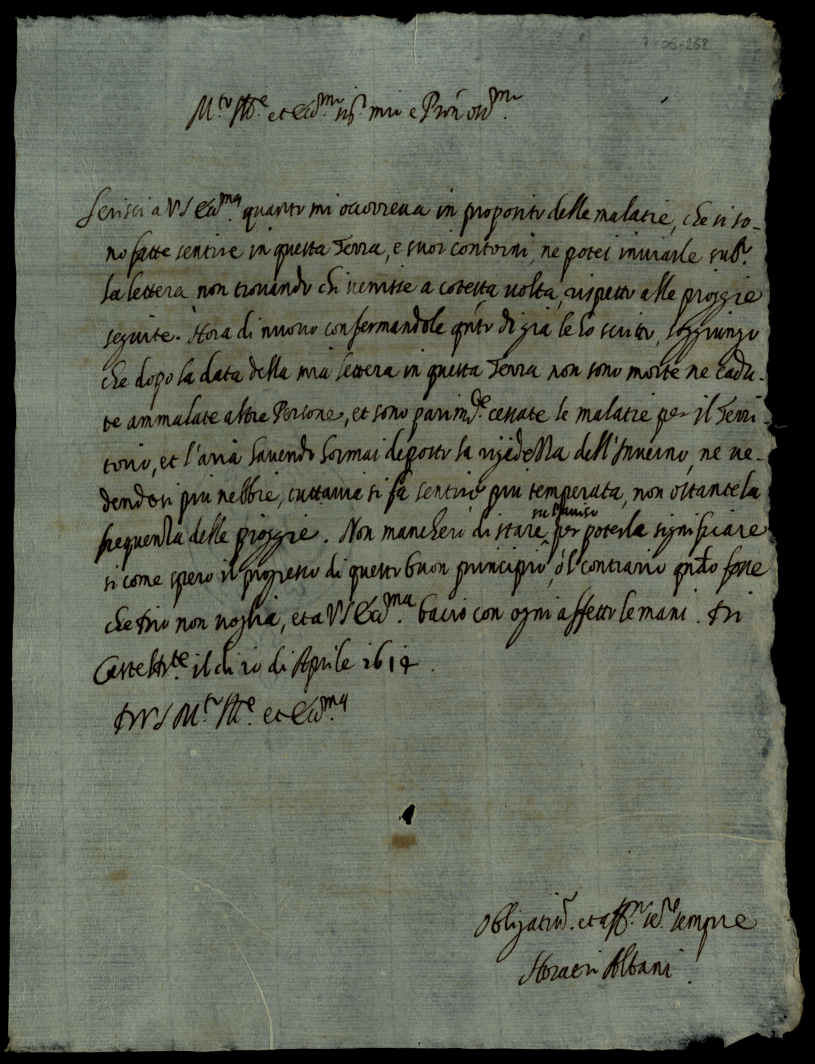 7-06-268
M.to Ill.e et Ecc.mo sig.r mio e Pron oss.mo
Scrissi a VS Ecc.ma quanto mi occorreua in proposito delle malatie, che si so-
no fatte sentire in questa Terra, e suoi contorni, ne potei inuiarle sub.o
la lettera non trouando chi uenisse a cotesta uolta, rispetto alle pioggie
seguite. Hora di nuouo confermandole q.nto di già le ho scritto, soggiungo
che dopo la data della mia lettera in questa Terra non sono morte ne cadu-
te ammalate altre Persone, et sono parim.te cessate le malatie per il Terri-
torio, et l'aria hauendo hormai deposto la rigidezza dell'Inuerno, ne ue-
dendosi piu nebbie, tuttauia si fa sentire piu temperata, non ostante la
frequenza delle pioggie. Non mancherò di stare su l'auiso per poterla significare
si come spero il progresso di questo buon principio, ò l contrario q.ndo fosse
che Dio non uoglia, et a VS Ecc.ma bacio con ogni affetto le mani. Di
Castel D.te il di 10 di Aprile 1614.
D VS M.to Ill.e et Ecc.ma
Obligatiss. et aff.mo se.re sempre
Horatio Albani